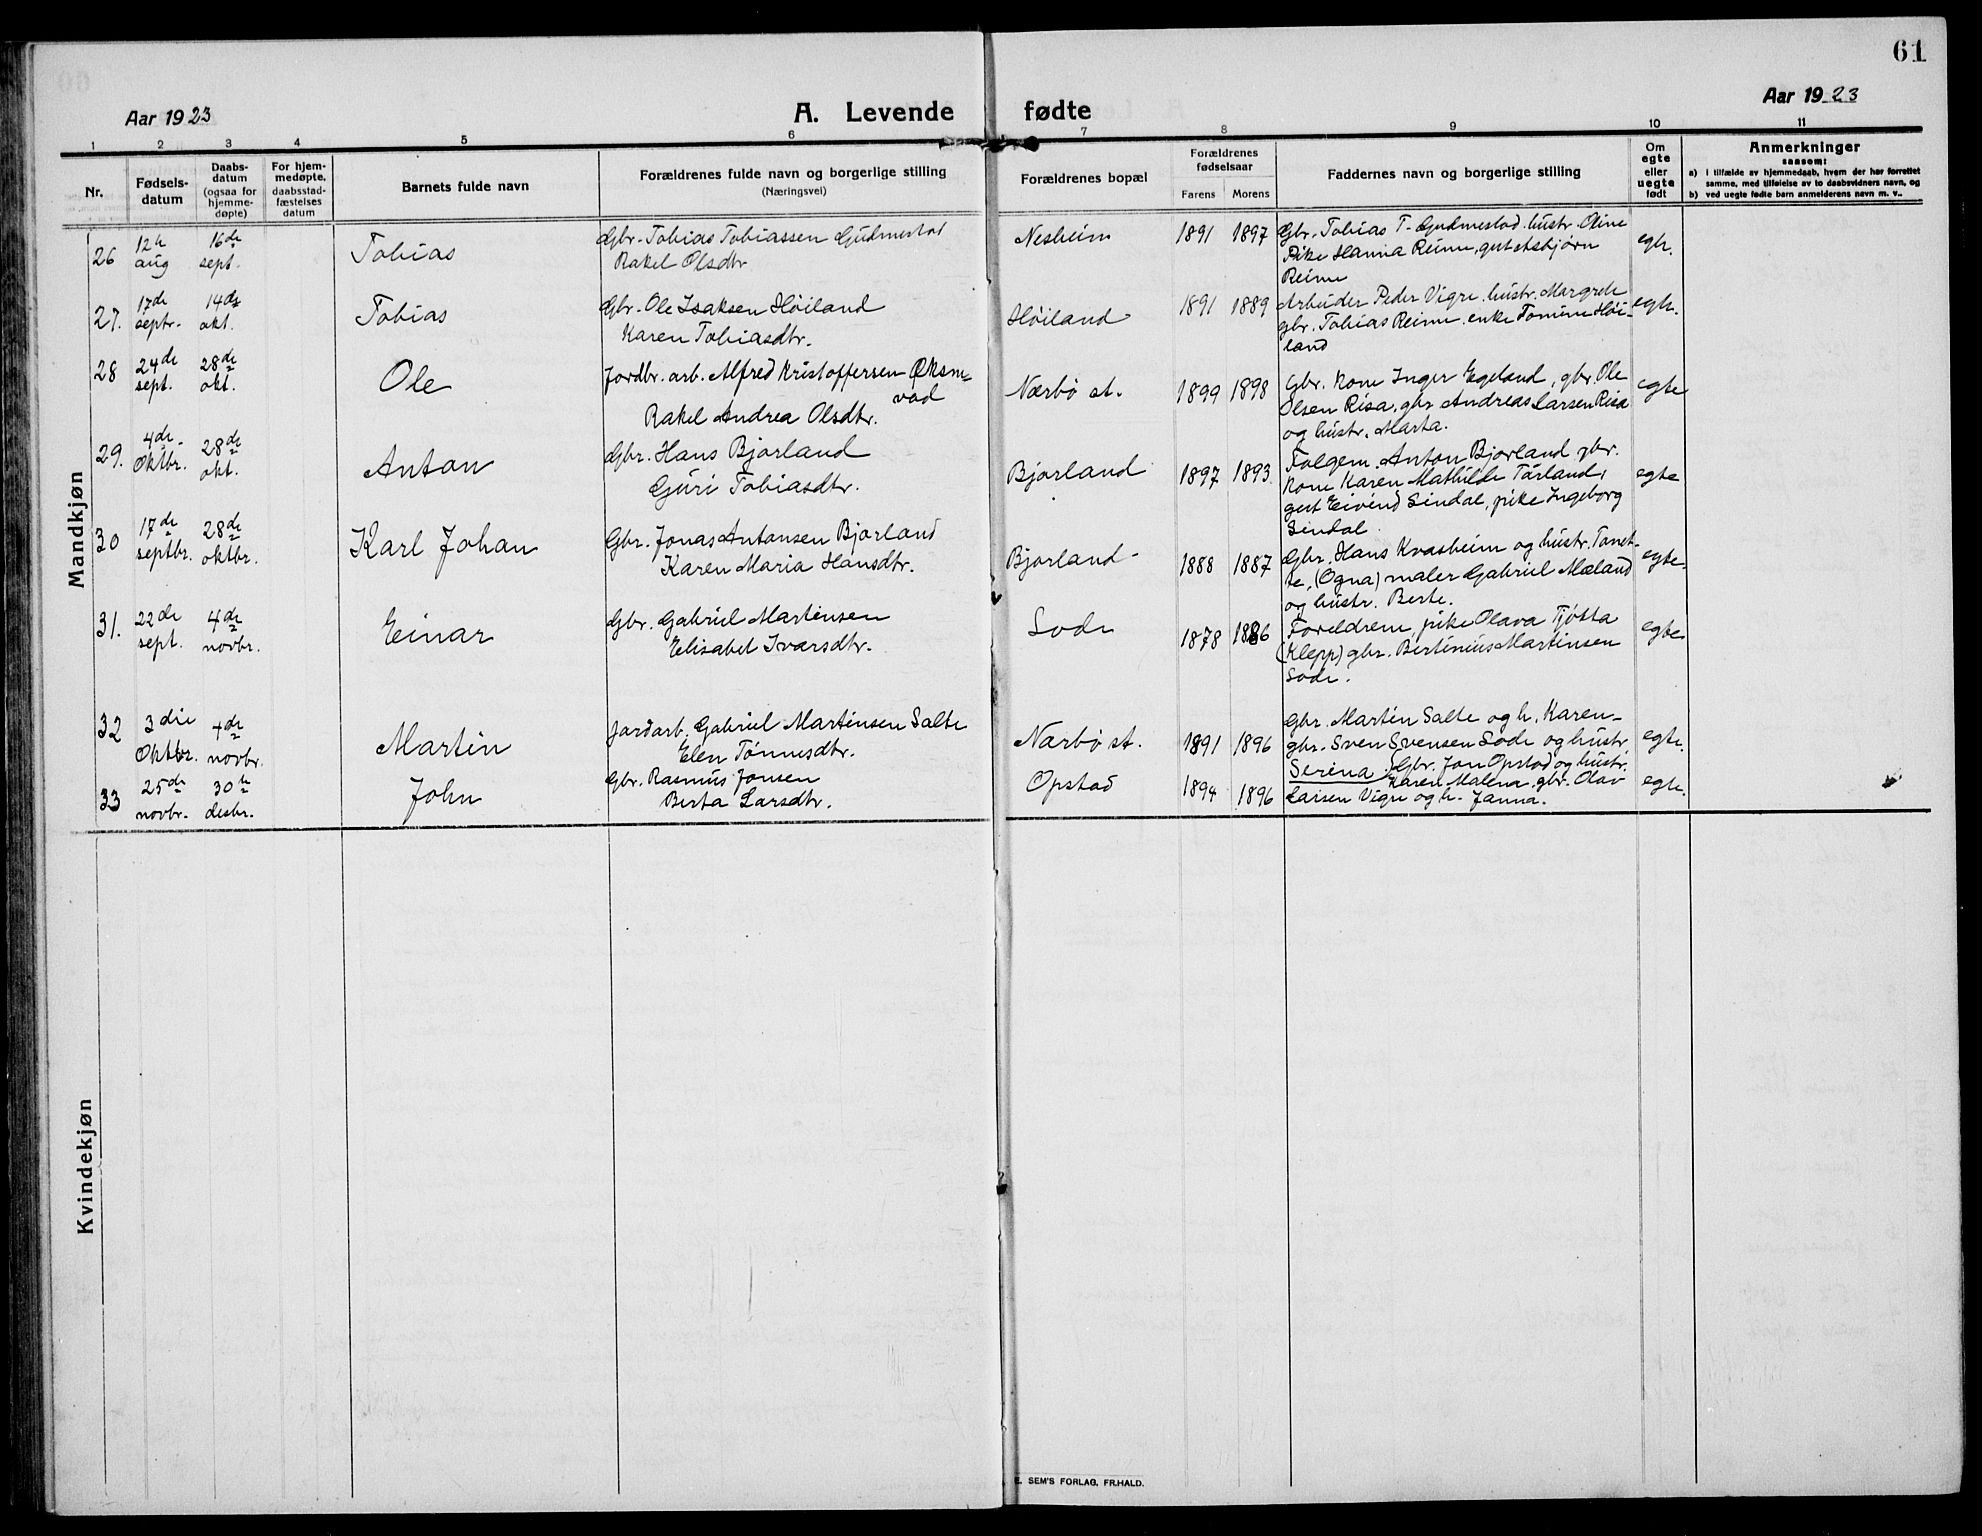 61
Aar 1923
A. Levende fødte
Aar 1923
1 2 3 4 5 6 7 8 9 10 11
Nr.
Fødsels-
datum
Daabs-
datum
(ogsaa for
hjemme-
døpte)
For hjem-
medøpte,
daabsstad-
fæstelses
datum
Barnets fulde navn
Forældrenes fulde navn og borgerlige stilling
(Næringsvei)
Forældrenes bopæl
Forældrenes
fødselsaar
Farens Morens
Faddernes navn og borgerlige stilling
Om
egte
eller
uegte
født
Anmerkninger
saasom:
a) i tilfælde av hjemmedaab, hvem der har forrettet
samme, med tilføielse av to daabsvidners navn, og
b) ved uegte fødte barn anmelderens navn m. v..
Mandkjøn
26 12te aug 16de sept. Tobias
Gbr. Tobias Tobiassen Gudmestad
Rakel Olsdtr
Nesheim 1891 1897
Gbr. Tobias T. Gudmestad. hustr. Oline
Pike Hanna Reime, gut Asbjørn
Reime
egte.
27. 17de septr. 14de okt. Tobias
Gbr. Ole Isaksen Høiland
Karen Tobiasdtr.
Høiland 1891 1889
Arbeider Peder Vigre. hustr. Margrete
gbr. Tobias Reime. enke Tomine Høi-
land
egte.
28 24de sept. 28de okt. Ole
Jordbr. arb. Alfred Kristoffersen Øksne-
vad
Rakel Andrea Olsdtr.
Nærbø st. 1899 1898
Gbr. kone Inger Egeland, gbr. Ole
Olsen Risa, gbr Andreas Larsen Risa
og hustr. Marta.
egte
29. 4de Oktbr. 28de okt. Anton
Gbr. Hans Bjorland
Guri Tobiasdtr.
Bjorland 1897 1893.
Folgem. Anton Bjorland gbr.
kone Karen Mathilde Tårland,
gut Eivind Sindal, pike Ingeborg
Sindal
egte
30 17de septbr. 28de oktbr. Karl Johan
Gbr. Jonas Antonsen Bjorland
Karen Maria Hansdtr.
Bjorland 1888 1887
Gbr. Hans Kvasheim og hustr. Tanet-
te, (Ogna) maler Gabriel Mæland
og hustr. Berte.
egte.
31. 22de sept. 4de novbr. Einar
Gbr. Gabriel Martinsen
Elisabet Ivarsdtr.
Sode 1878 1886
Foreldrene, pike Olava Tjøtta
(Klepp) gbr. Bertinius Martinsen
Sode.
egte
32 3die Oktbr. 4de novbr. Martin
Jordarb. Gabriel Martinsen Salte
Elen Tønnesdtr.
Nærbø st. 1891 1896
Gbr. Martin Salte og h. Karen-
gbr. Sven Svensen Sode og hustr.
Serina.
egte.
33 25de novbr. 30te desbr. John
Gbr. Rasmus Jonsen
Berta Larsdtr.
Opstad 1894 1896
Gbr. Jon Opstad og hustr.
Karen Malena. gbr. Olav
Larsen Vigre og h. Janna.
egte.
Kvindekjøn
E. SEM'S FORLAG, FR.HALD.